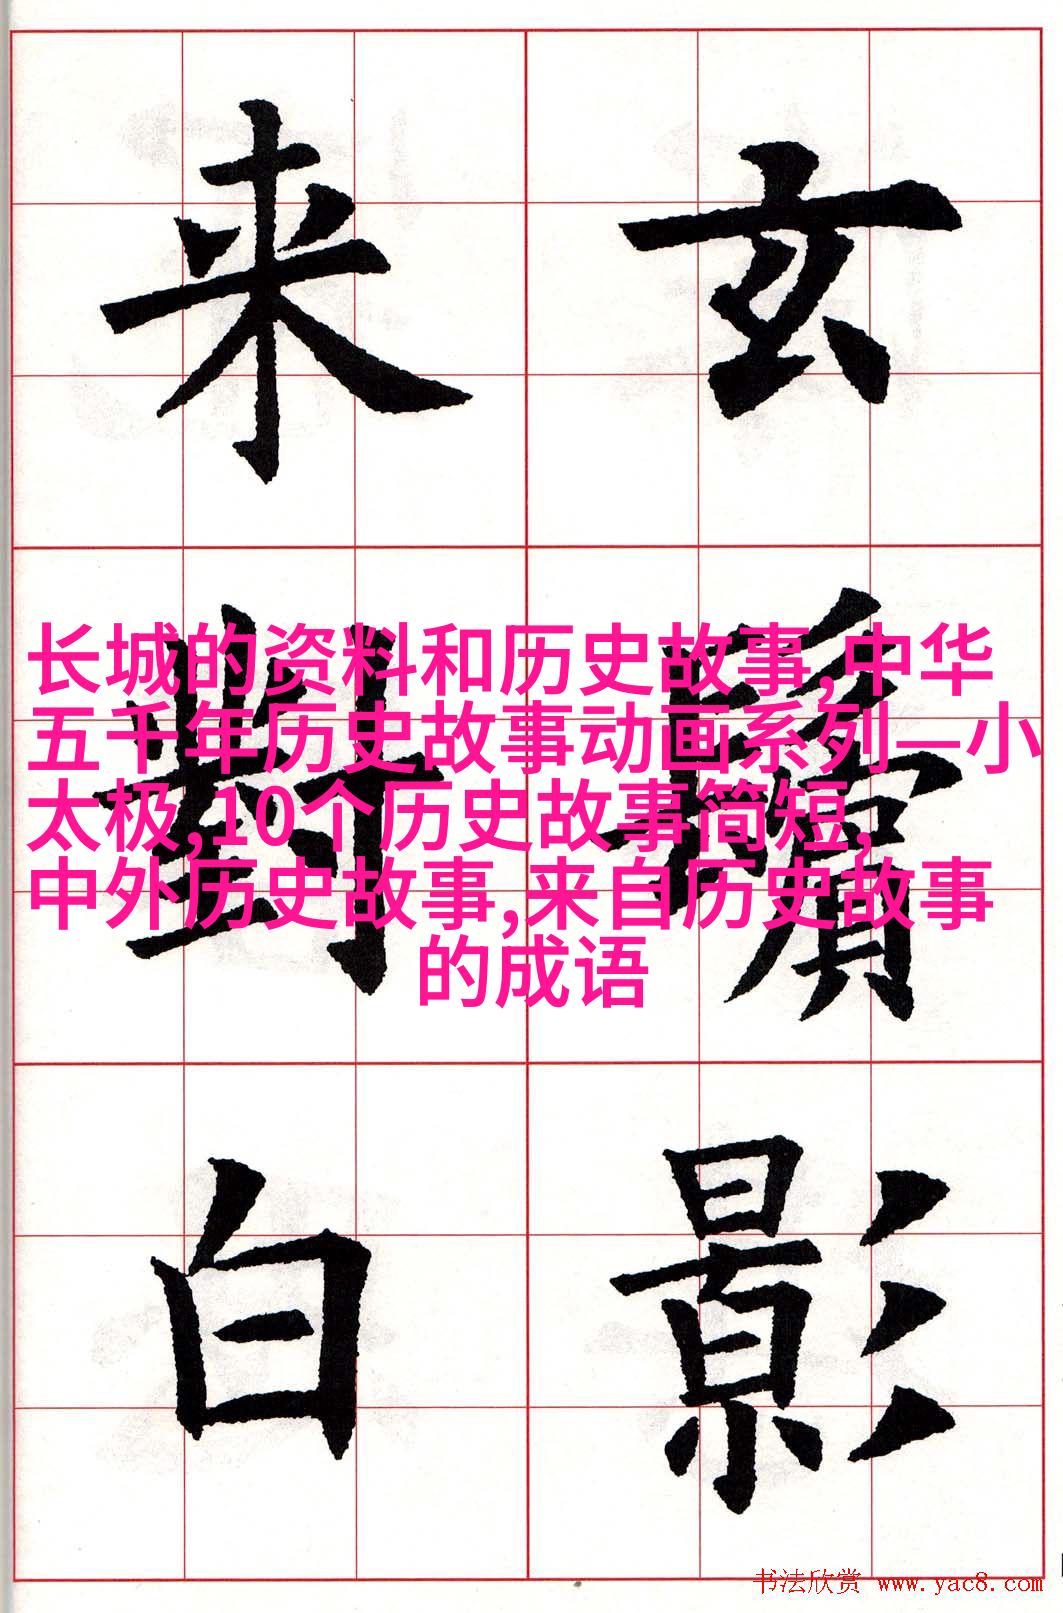 玄鬢影
来對白
长城的资料和历史故事,中华
五千年历史故事动画系列—小
太极,10个历史故事简短,
中外历史故事,来自历史故事
的成语
书法欣赏 www.yac8.com